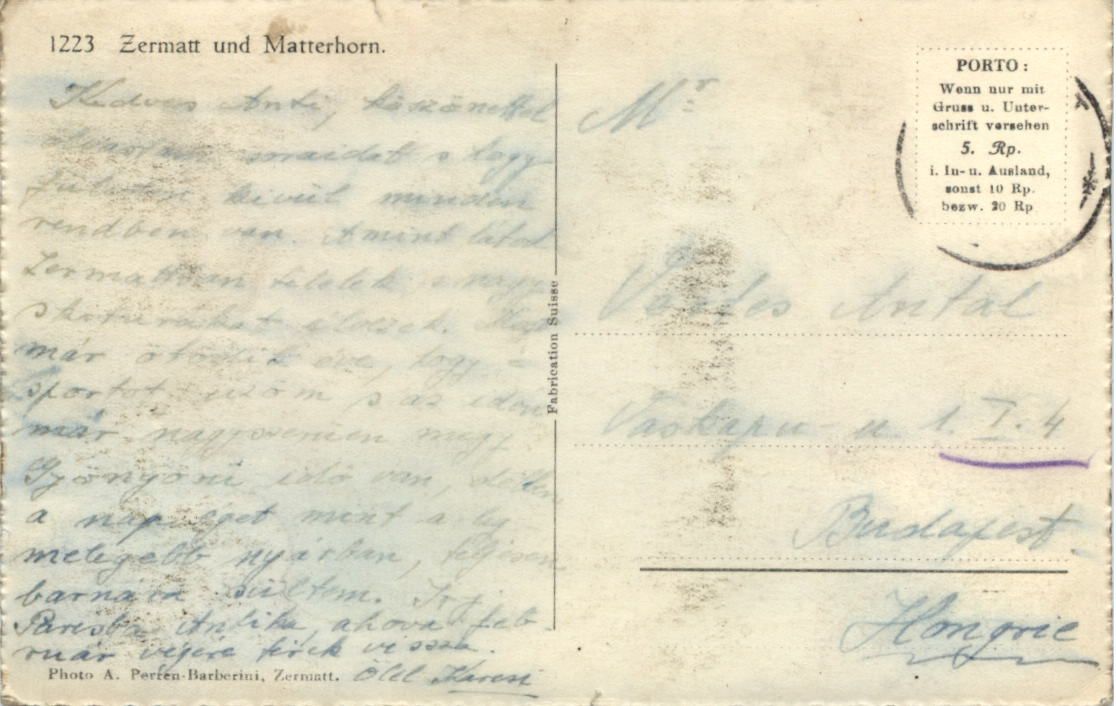 1223 Zermatt und Matterhorn.
Kedves Anti, köszönettel
soraidat s hogy
kivül minden
rendben van. Amint látod
Zermattban
már ötödik éve, hogy
sportot űzöm s az idén
már nagyszerűen megy
Gyönyörű idő van, délben
a nap éget mint a leg-
melegebb nyárban, teljesen
barnára sültem. Irj
Párisba Antika ahova feb-
ruár végére térek vissza.
Ölel Karcsi
Photo A. Perren-Barberini, Zermatt.
Fabrication Suisse
PORTO:
Wenn nur mit
Gruss u. Unter-
schrift versehen
5. Rp.
i. In- u. Ausland,
sonst 10 Rp.
bezw. 20 Rp
Mr
Antal
Vaskapu u 1. I. 4
Budapest
Hongrie